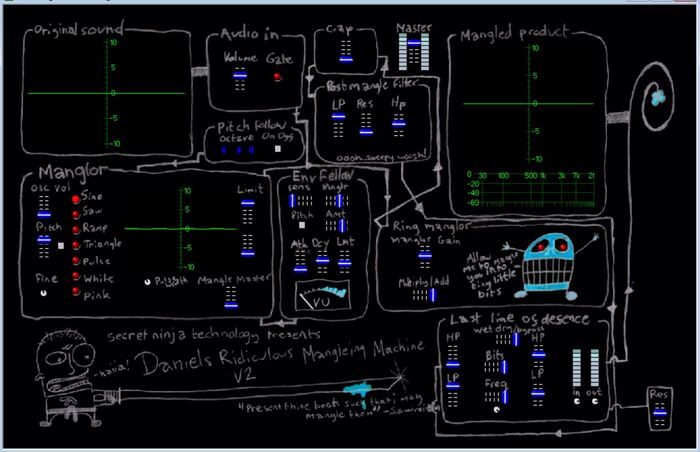 Original sound
10
5
0
-5
-10
Audio in
Volume Gate
Crap
Master
Mangled product
10
5
0
-5
-10
0 30 100 500 1k 3k 7k 2l
-20
-40
-60
Post mangle filter
LP Res Hp
oooh..sweepy woosh!
Pitch follow
octave On Off
Manglor
osc vol
Sine
Saw
Ramp
Triangle
Pulse
White
Pink
Pitch
Fine
10
5
0
-5
-10
Limit
Mangle Master
Env Follow
Sens Mangle
Pitch Amt
Atk Dcy Lmt
VU
Ring manglor
Manglor Gain
Multiply/Add
Allow
me to mangle
you into
tiny little
bits
Last line of desence
Wet dry/bypass
HP HP
Bits
LP LP
Freq
in out
Res
secret ninja technology presents
haiia!
Daniels Ridiculous Mangleing Machine
V2
"Present thine beats such that i may
mangle them" - Samurai